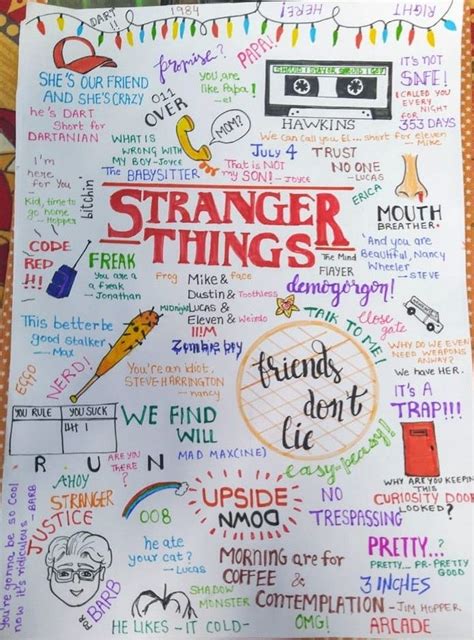 DART !!
1984
HERE!
RIGHT
promise?
PAPA!
SHE'S OUR FRIEND
AND SHE'S CRAZY
011
OVER
you are
like Papa!
- el
SHOULD I STAY OR SHOULD I GO?
HAWKINS
IT'S NOT
SAFE!
I CALLED YOU
EVERY
NIGHT
FOR
353 DAYS
he's DART
Short for
DARTANIAN
MOM?
We can call you El... short for eleven
- Mike
WHAT IS
WRONG WITH
MY BOY - Joyce
The BABYSITTER
That is NOT
my SON! - Joyce
July 4
TRUST
NO ONE
- LUCAS
ERICA
I'm
here
for You
bitchin'
Kid, time to
go home
- Hopper
STRANGER
THINGS
MOUTH
BREATHER.
CODE
RED
!!!
FREAK
You are a
freak -
Jonathan
Frog
Face
Mike &
Dustin & Toothless
MIDnight
Lucas &
Eleven & Weirdo
!!!M
Zombie boy
The Mind
Flayer
demogorgon!
And you are
Beautiful, Nancy
Wheeler
- STEVE
TALK TO ME
close
gate
This better be
good stalker
- Max
EGGO
NERD!
You're an idiot,
STEVE HARRINGTON
- nancy
friends
don't
lie
WHY DO WE EVEN
NEED WEAPONS
ANYWAY?
We have HER.
IT'S A
TRAP!!!
YOU RULE
YOU SUCK
WE FIND
WILL
MAD MAX
R U N
ARE YOU
IN
THERE
?
easy-peasy!!
WHY ARE YOU KEEPING
THIS
CURIOSITY DOOR
LOCKED?
AHOY
STRANGER
JUSTICE
008
UPSIDE
DOWN
NO
TRESPASSING
You're gonna be so cool
now it's ridiculous - BARB
FOR
BARB
he ate
your cat?
- Lucas
SHADOW
MONSTER
MORNING are for
COFFEE &
CONTEMPLATION
- JIM HOPPER
PRETTY...?
PRETTY... PR-PRETTY
GOOD
3 INCHES
HE LIKES - IT COLD-
OMG!
ARCADE